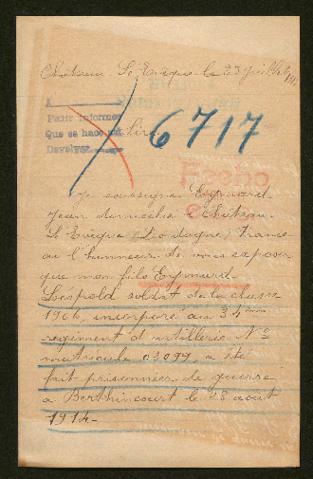 Château L'Evêque le 23 Juillet
A
Para informes
Que se hace
Devolver
Sire
6717
Fecho
Je soussigné Eymard
Jean domicilié à Château
L'Evêque (Dordogne) France
ai l'honneur de vous exposer
que mon fils Eymard
Léopold soldat de la classe
1906, incorporé au 34ème
régiment d'artillerie No
matricule 03099, a été
fait prisonnier de guerre
à Berthincourt le 28 août
1914.